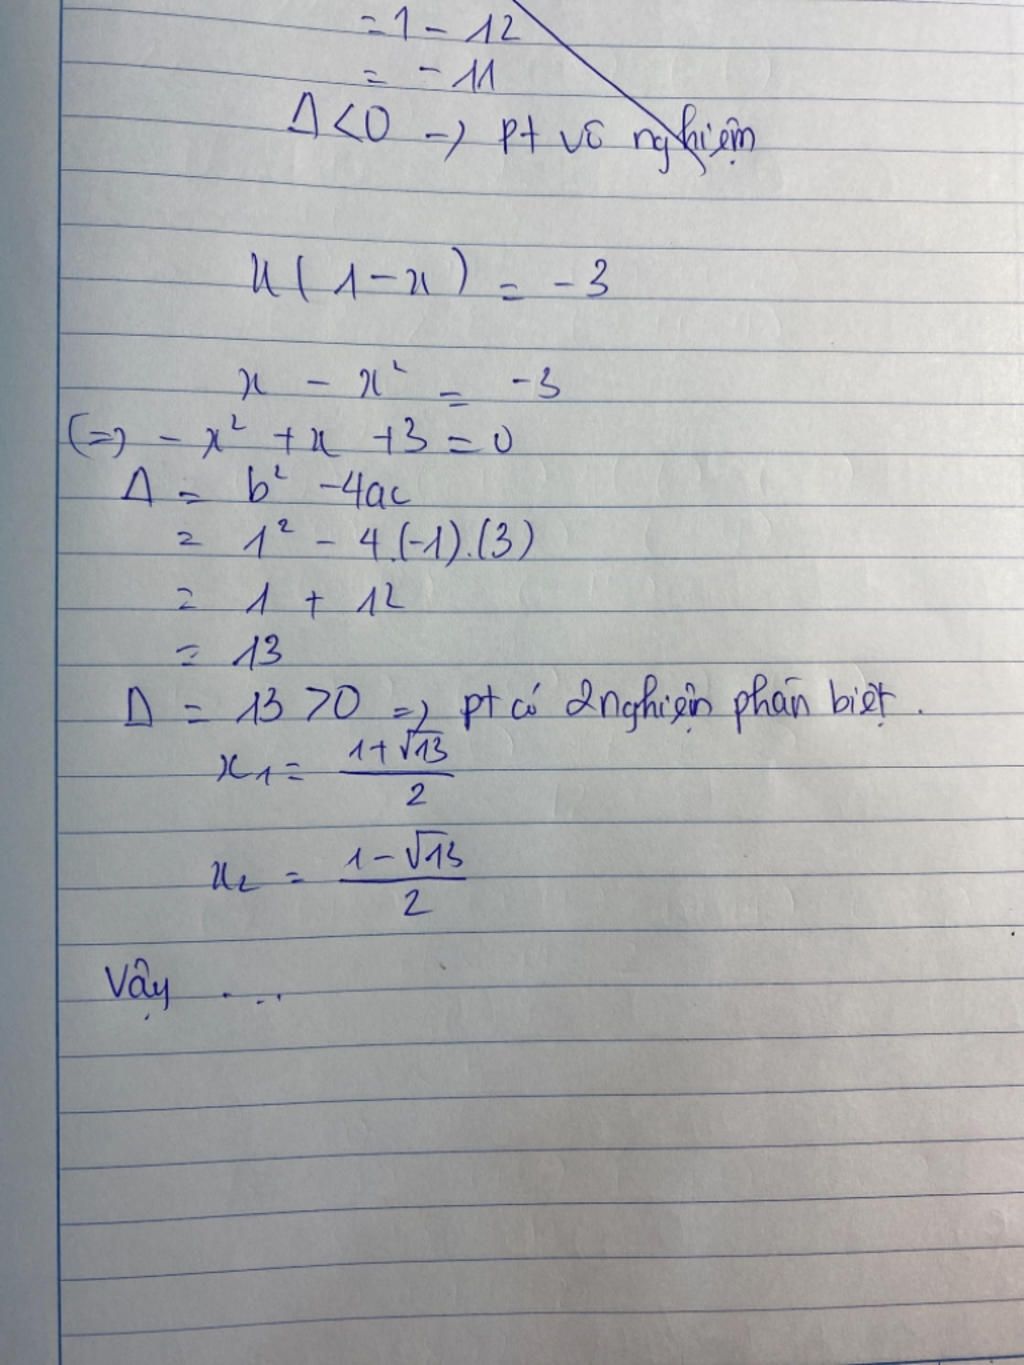 = 1 - 12
= - 11
Δ < 0 → pt vô nghiệm
x ( 1 - x ) = - 3
x - x² = -3
(=) - x² + x + 3 = 0
Δ = b² - 4ac
= 1² - 4.(-1).(3)
= 1 + 12
= 13
Δ = 13 > 0 => pt có 2 nghiệm phân biệt.
x₁ = (1+√13)/2
x₂ = (1-√13)/2
Vậy ...